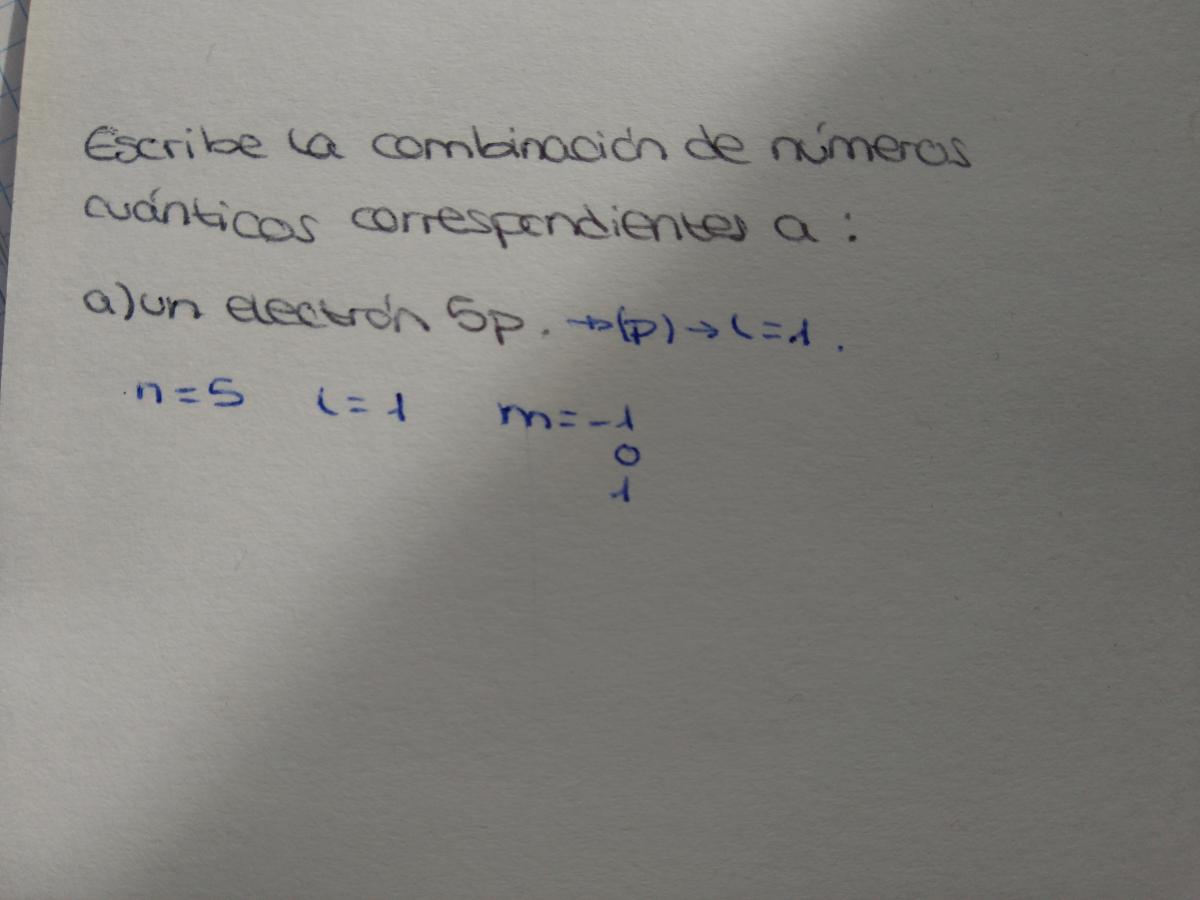 Escribe la combinación de números
cuánticos correspondientes a :
a) un electrón 5p. → (p) → l = 1.
n = 5 l = 1 m = -1
0
1